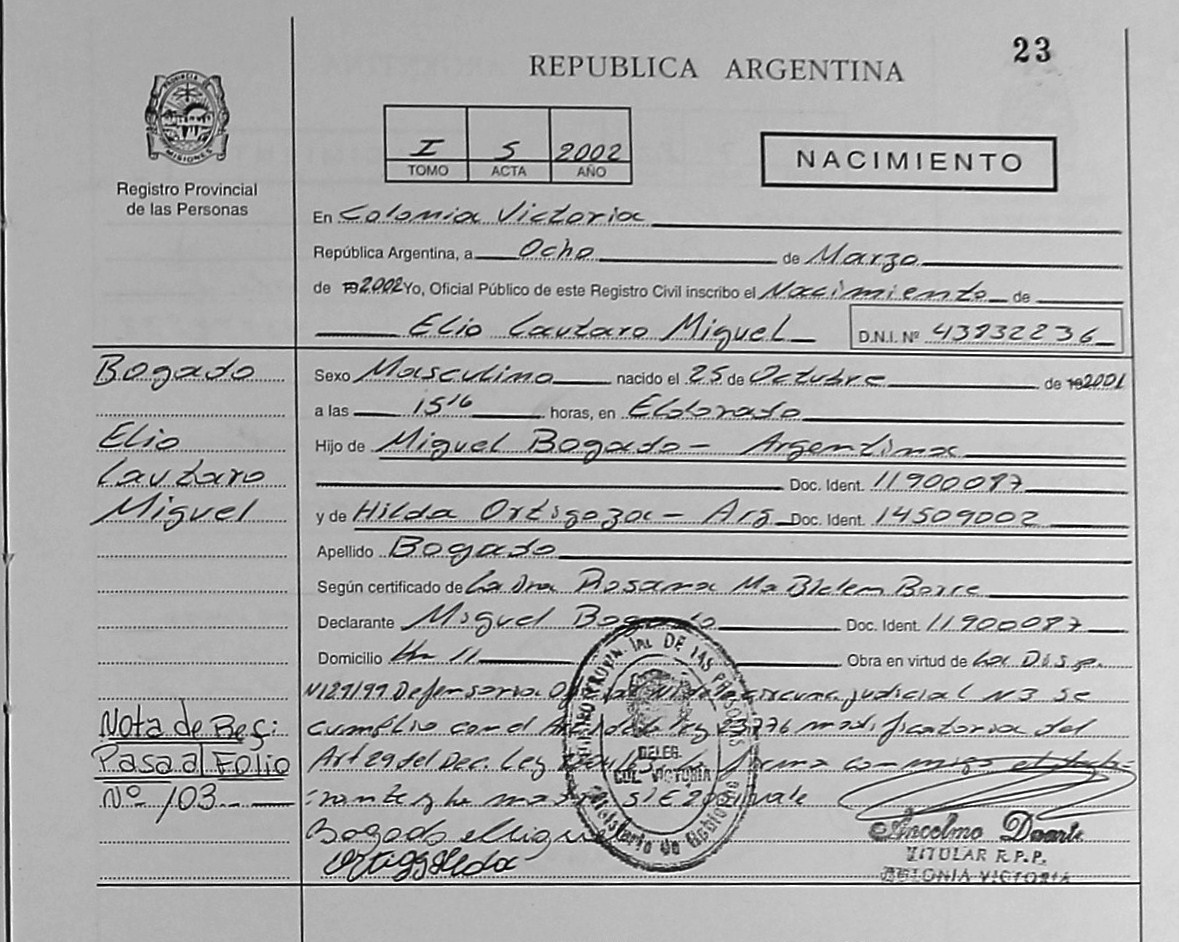 23
REPUBLICA ARGENTINA
PROVINCIA DE MISIONES
Registro Provincial
de las Personas
I 5 2002
TOMO ACTA AÑO
NACIMIENTO
En Colonia Victoria
República Argentina, a Ocho de Marzo
de 2002 Yo, Oficial Público de este Registro Civil inscribo el Nacimiento de
Elio Lautaro Miguel D.N.I. Nº 43832236
Bogado
Elio
Lautaro
Miguel
Sexo Masculino nacido el 25 de Octubre de 2001
a las 15 16 horas, en Eldorado
Hijo de Miguel Bogado - Argentina
Doc. Ident. 11900087
y de Hilda Ortigoza - Arg Doc. Ident. 14509002
Apellido Bogado
Según certificado de La Dra Rosana Ma
Declarante Miguel Bogado Doc. Ident. 11900087
Domicilio Km 11 Obra en virtud de La Disp.
Defensoria judicial N 3 Se
cumplio con el ley modificatoria del
Art 29 del Dec. Ley firma conmigo
y la madre
Bogado Miguel
Nota de Ref:
Pasa al Folio
Nº 103
DELEG.
COL. VICTORIA
Ministerio de Gobierno
Ancelmo Duarte
TITULAR R.P.P.
COLONIA VICTORIA